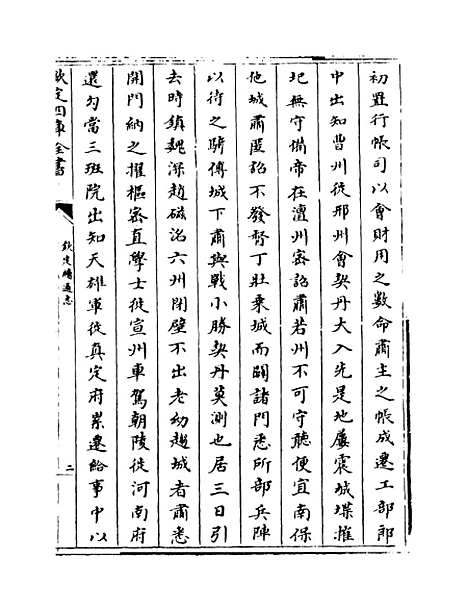 初置行帳司以會財用之數命肅主之帳成遷工部郎
中出知曹州徙邢州會契丹大入先是地屢震城堞摧
圮無守備帝在澶州密詔肅若州不可守聽便宜南保
他城肅匿詔不發督丁壯乗城而闢諸門悉所部兵陣
以待之騎傅城下肅與戰小勝契丹莫測也居三日引
去時鎮魏深趙磁洺六州閉壁不出老幼趨城者肅悉
開門納之擢樞密直學士徙宣州車駕朝陵徙河南府
還勾當三班院出知天雄軍徙真定府累遷給事中以
欽定四庫全書
欽定續通志
二